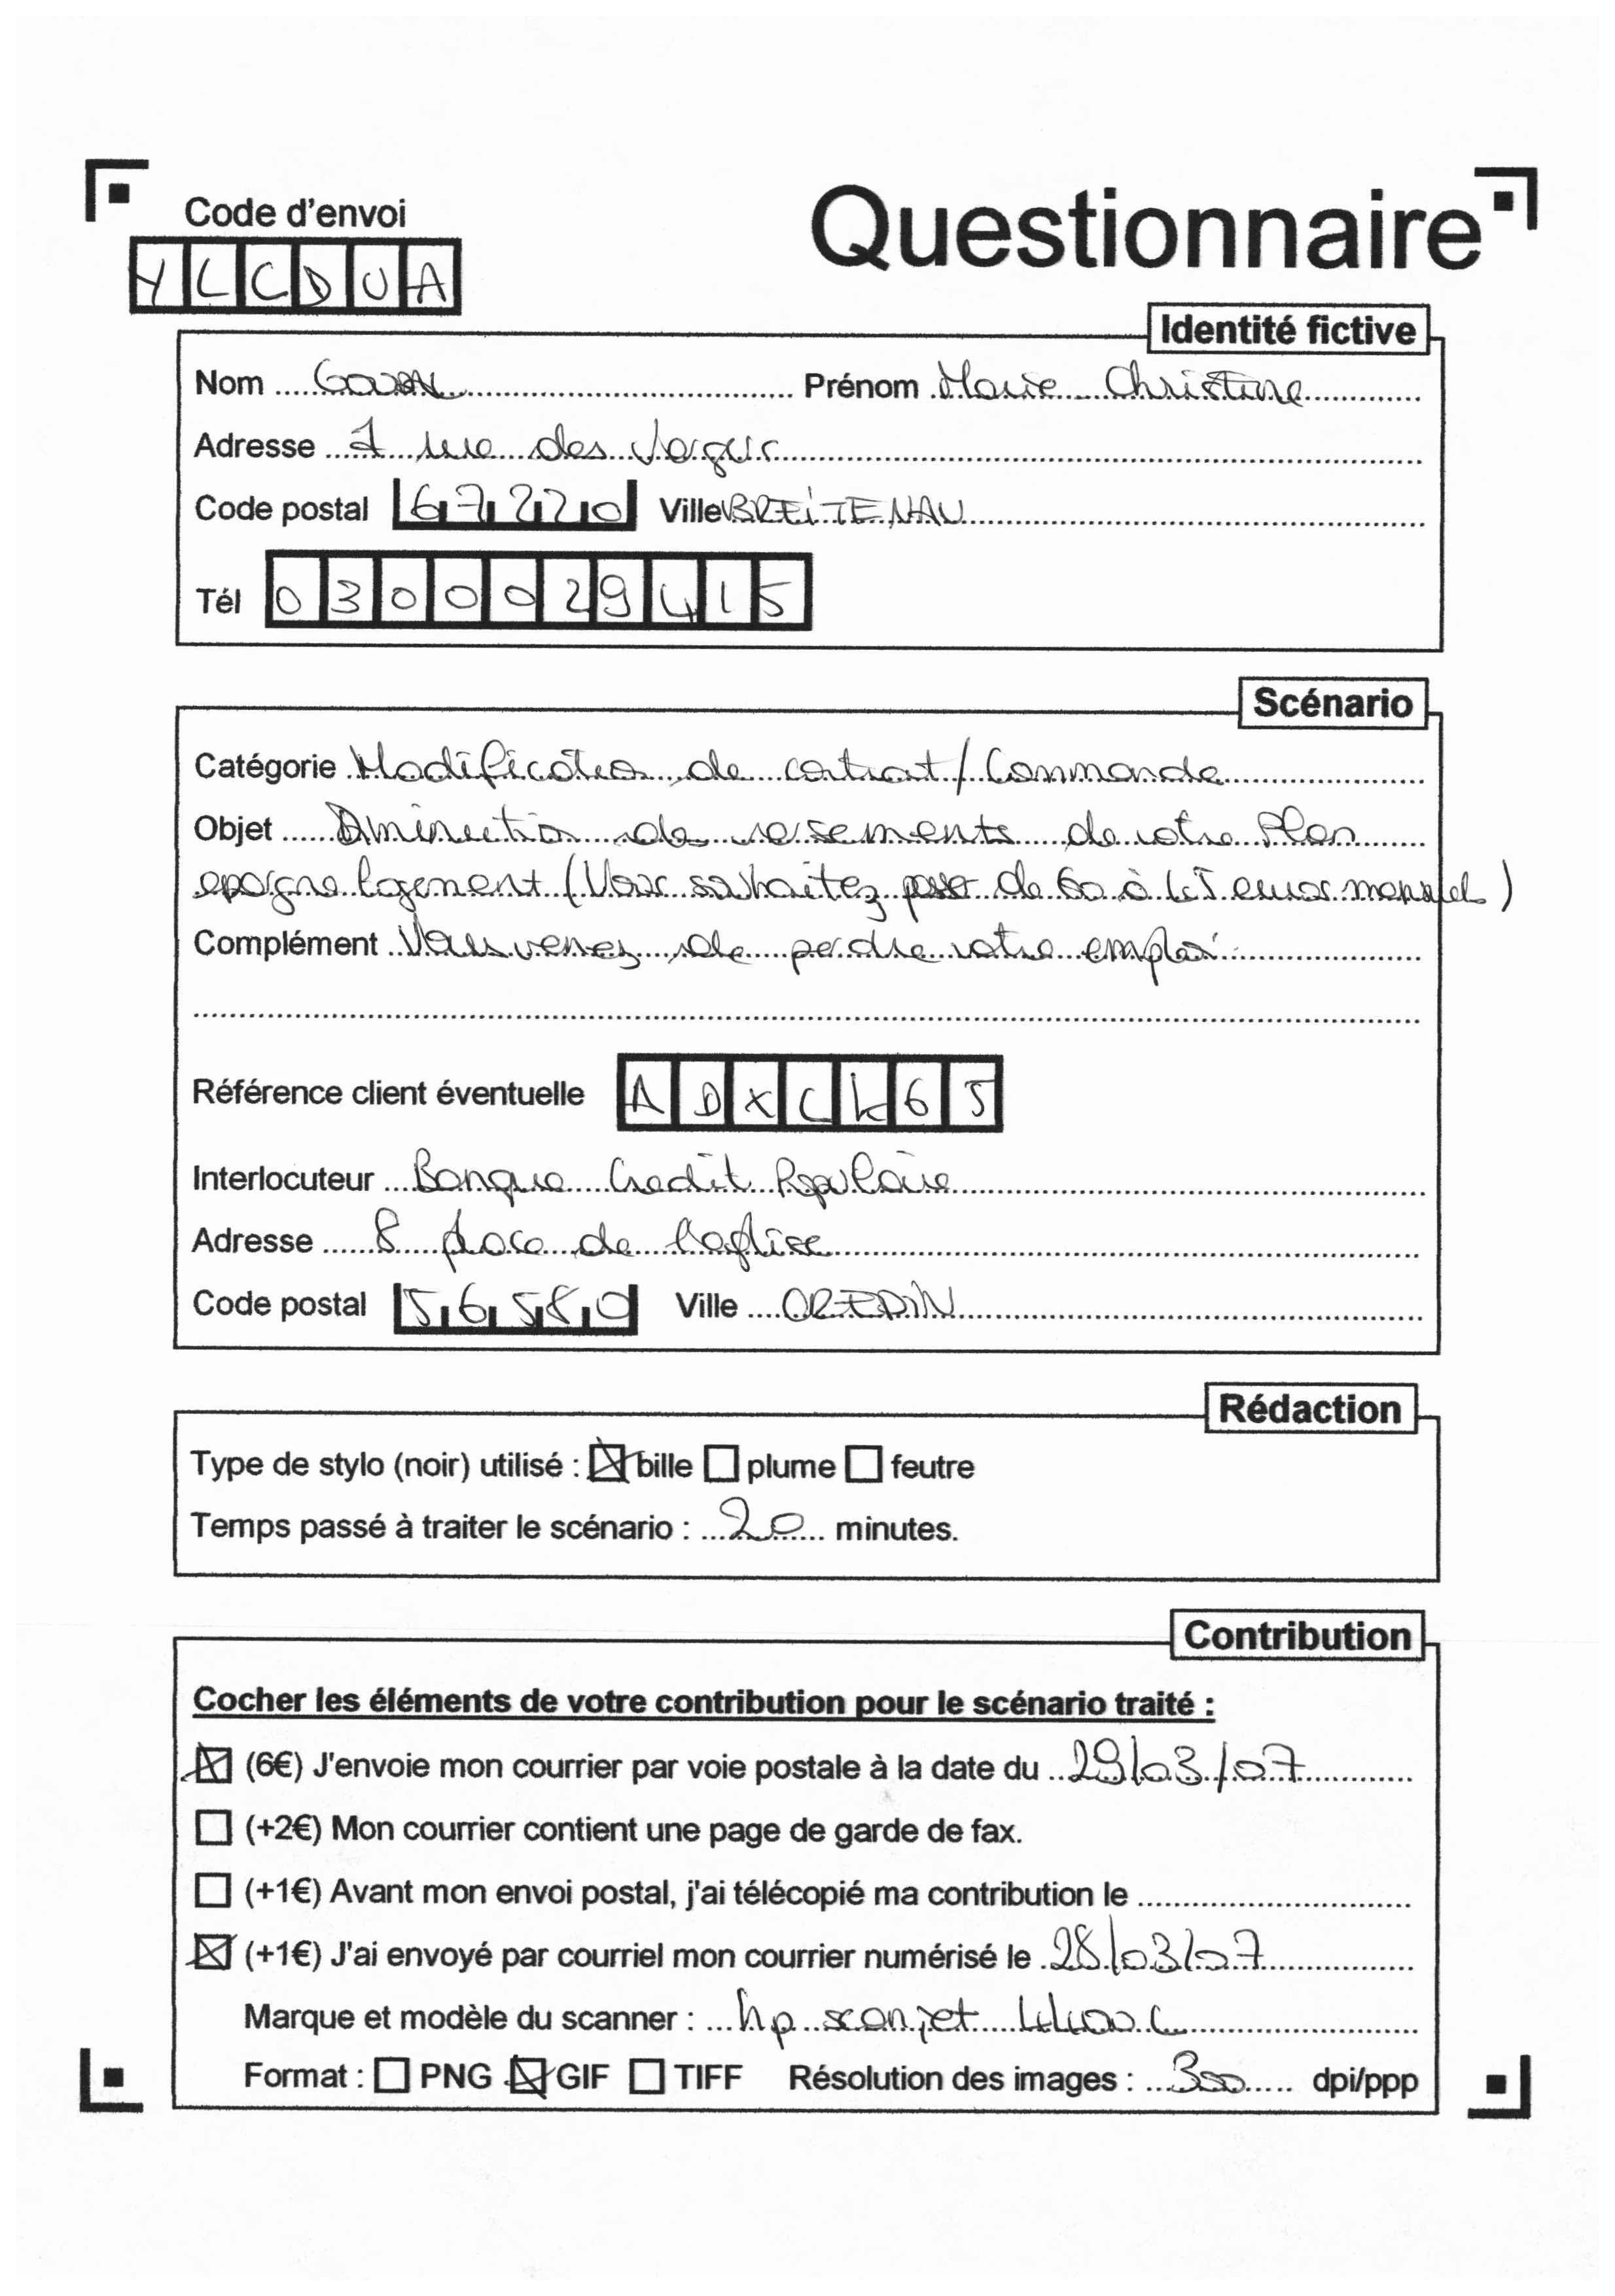 Code d'envoi
Questionnaire
YLCDUA
Identité fictive
Nom Prénom Marie Christine
Adresse 1 rue des
Code postal 67220 Ville BREITENAU
Tél 0300029415
Scénario
Catégorie Modification de contrat / Commande
Objet Diminution de versements de votre Plan
epargne logement (Vous souhaitez passer de 60 à 45 euros mensuels)
Complément Vous venez de perdre votre emploi
Référence client éventuelle ADXCK65
Interlocuteur Banque Credit Populaire
Adresse 8 place de l'eglise
Code postal 56580 Ville CREDIN
Rédaction
Type de stylo (noir) utilisé : bille plume feutre
Temps passé à traiter le scénario : 20 minutes.
Contribution
Cocher les éléments de votre contribution pour le scénario traité :
(6€) J'envoie mon courrier par voie postale à la date du 29/03/07
(+2€) Mon courrier contient une page de garde de fax.
(+1€) Avant mon envoi postal, j'ai télécopié ma contribution le
(+1€) J'ai envoyé par courriel mon courrier numérisé le 28/03/07
Marque et modèle du scanner : hp scanjet 4400 C
Format : PNG GIF TIFF Résolution des images : 300 dpi/ppp